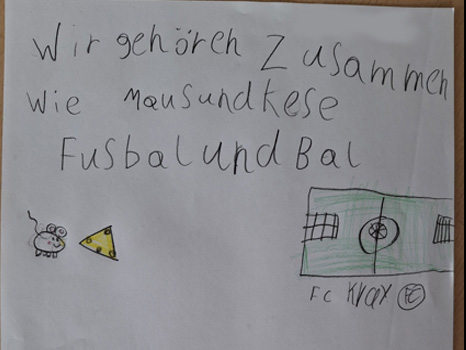 Wir gehören Zusammen
Wie Mausundkese
Fusbalundbal
FC Krax FC